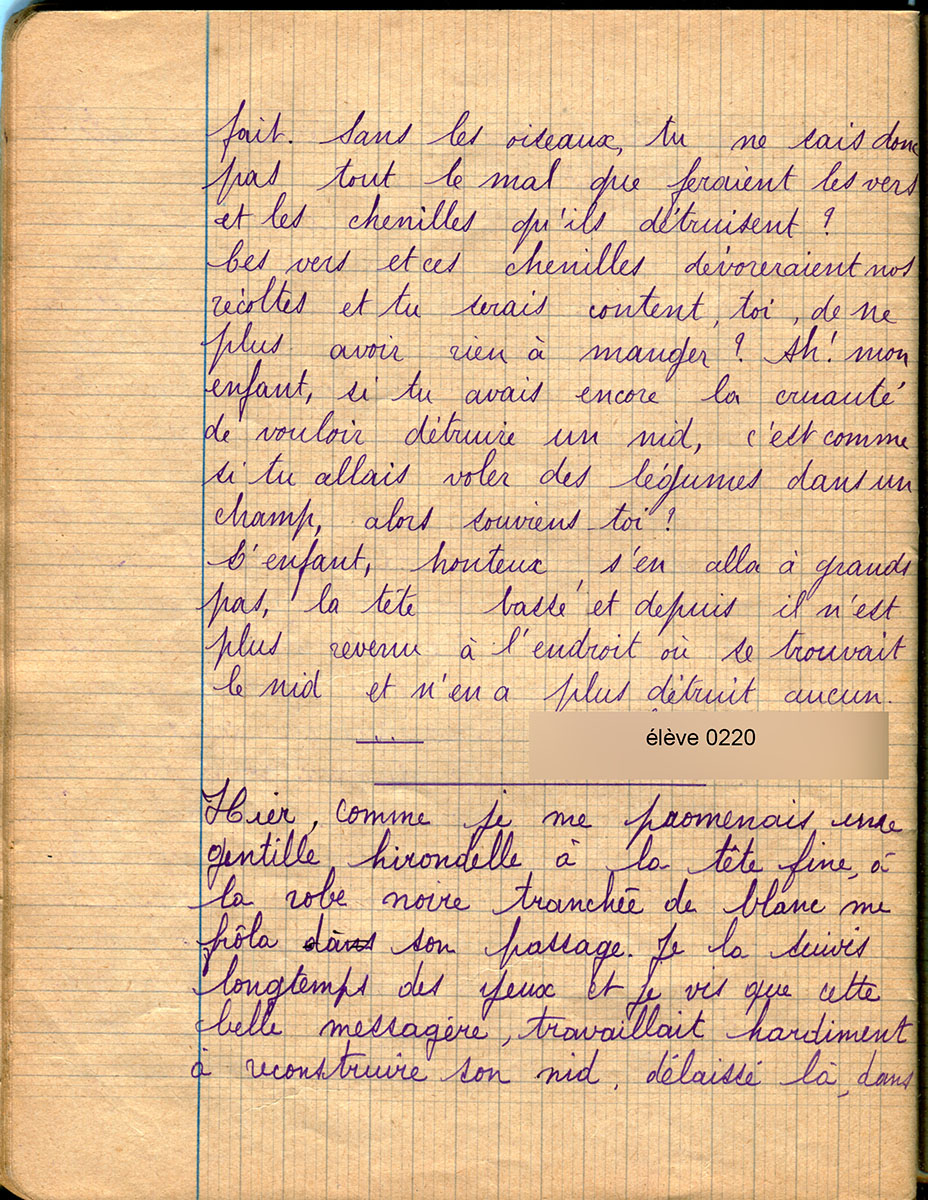 fait. Sans les oiseaux, tu ne sais donc
pas tout le mal que feraient les vers
et les chenilles qu'ils détruisent ?
Ces vers et ces chenilles dévoreraient nos
récoltes et tu serais content, toi, de ne
plus avoir rien à manger ? Ah ! mon
enfant, si tu avais encore la cruauté
de vouloir détruire un nid, c'est comme
si tu allais voler des légumes dans un
champ, alors souviens toi ?
L'enfant, honteux, s'en alla à grands
pas, la tête basse et depuis il n'est
plus revenu à l'endroit où se trouvait
le nid et n'en a plus détruit aucun.
élève 0220
Hier, comme je me promenais une
gentille hirondelle à la tête fine, à
la robe noire tranchée de blanc me
frôla dans son passage. Je la suivis
longtemps des yeux et je vis que cette
belle messagère, travaillait hardiment
à reconstruire son nid, délaissé là, dans